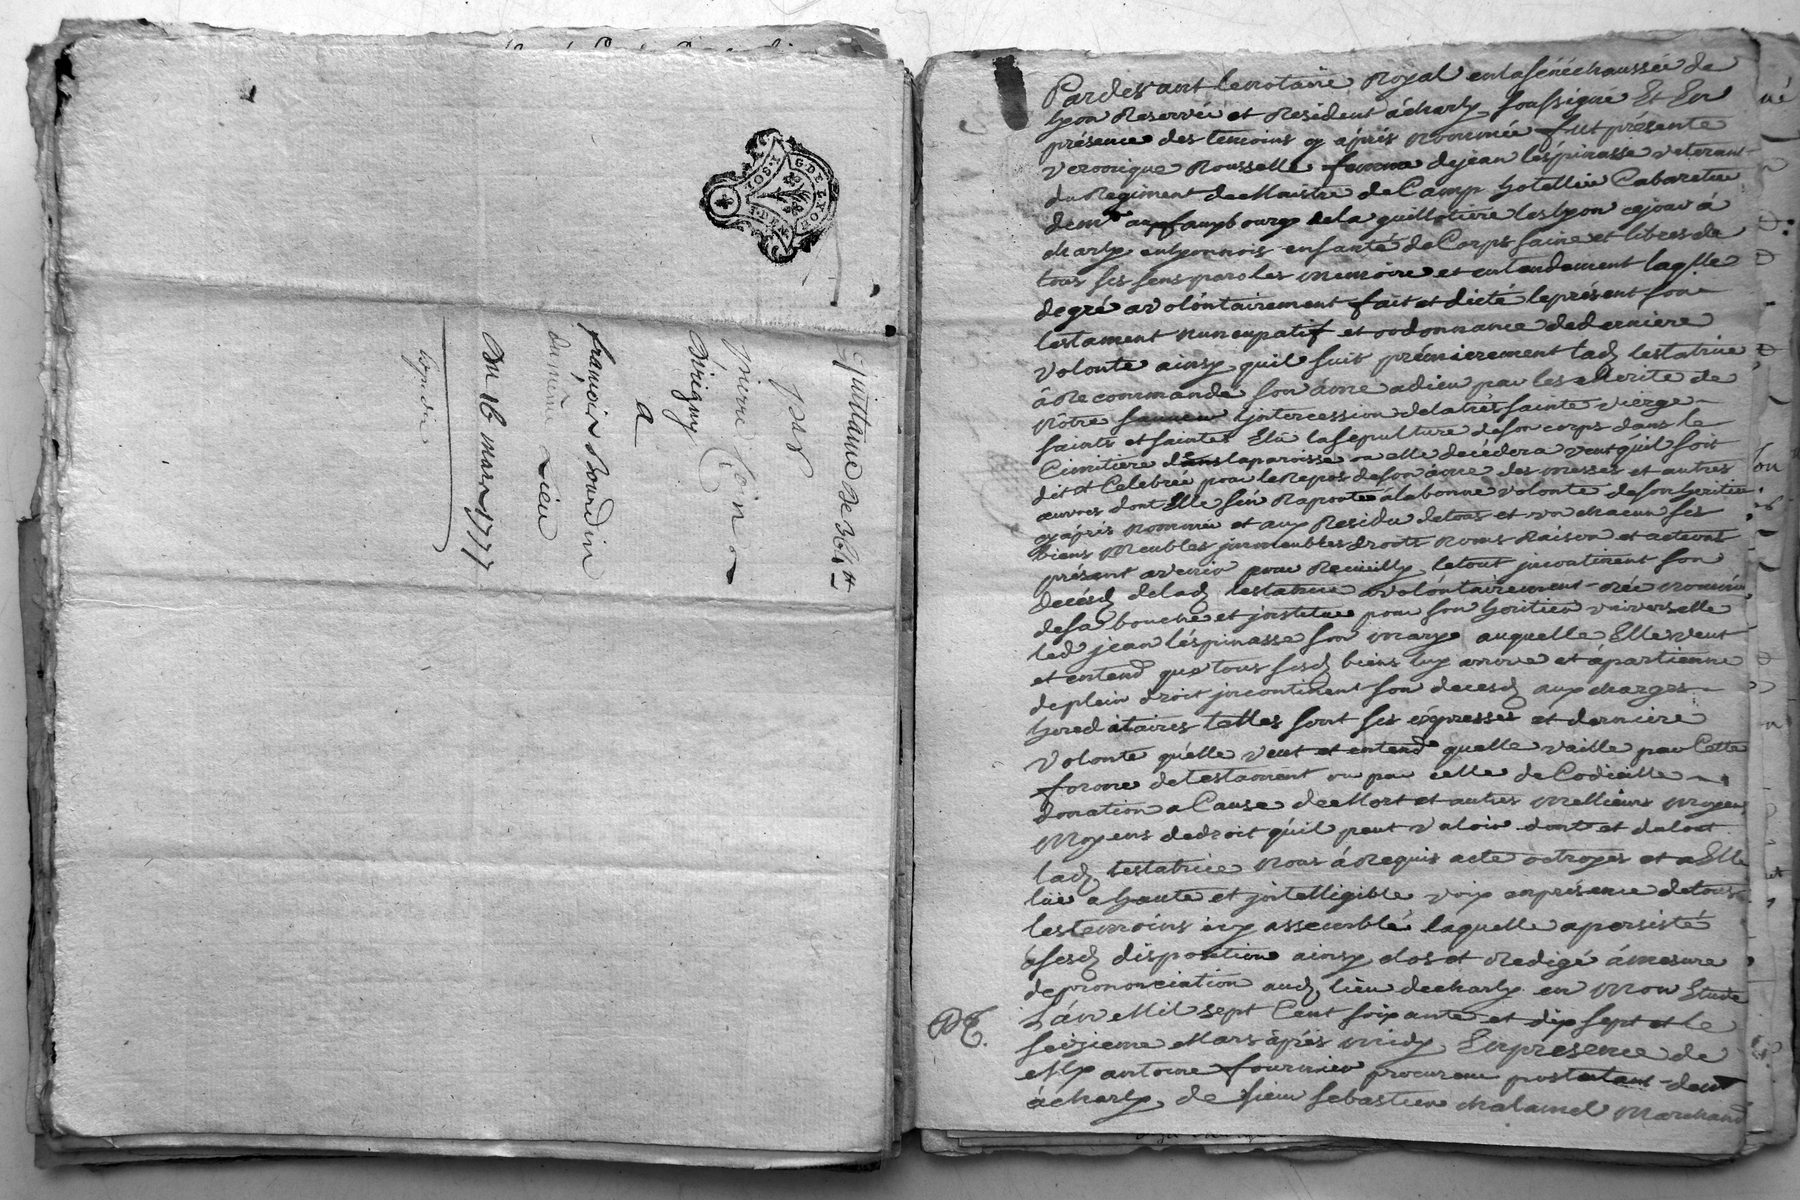 G. DE LYON
Quittance de 361 ᵗᵗ
par
pierre
Virigny
a
françois Bourdin
du même Lieu
Du 16 mars 1777
Expedié
Pardevant le notaire Royal en la sénéchaussée de
Lyon Reservé et Resident a charly soussigné Et En
présence des temoins cy aprés nommée fut présente
veronique Rousselle femme de jean lespinasse veteran
du Regiment de Maistre de Camp hotellier Cabaretier
demt au faubourg de la guillotiere les lyon ce jour a
charly en lyonnois en santé de Corps saine et libres de
tous ses sens paroles memoire et entendement laqlle
de gré a volontairement fait et dicté le présent son
testament nuncupatif et ordonnance de derniere
volonte ainsy quil suit prémierement lad testatrice
a Recommandé son âme a dieu par les Merite de
Nôtre sauveur L'intercession de la trés sainte vierge
saints et saintes Elü la sepulture de son corps dans le
Cimitiere dans la paroisse ou elle decédera veut quil soit
dit et Celebrée pour le Repos de son âme des messes et autres
œuvres dont Elle s'en Raporte a la bonne volonte de son heritier
cy aprés nommé et au Residu de tous et un chacun ses
biens Meubles jmmeubles droits Noms Raison et actions
présent avenir pour Recueilly le tout jncontinent son
decésd de lad testatrice volontairement née nommé
de sa bouche et jnstitue pour son heritier universelle
led jean lespinasse son mary auquelle Elle veut
et entend que tous sesd biens luy arrive et apartienne
de plein droit jncontinent son decesd aux charges
hereditaires telles sont ses éxpresses et derniere
Volonte qu'elle veut et entend quelle vaille par Cette
forme de testament ou par celle de Codicille
donation a Cause de Mort et autres Meilleurs Moyens
Moyens de droit quil peut valoir dont et du tout
lad testatrice Nous a Requis acte octroyes et a Elle
lüe a haute et jntelligible voix en présence de tous
les temoins icy assemblé laquelle a persisté
a sesd disposition ainsy clos et Redigé a mesure
de prononciation aud lieu de charly en mon Etude
L'an Mil sept Cent soixante et dix sept et le
seizieme Mars aprés midy En présence de
Me antoine fournier procureur postulant demt
a charly, de sieur sebastien chalamel Marchand